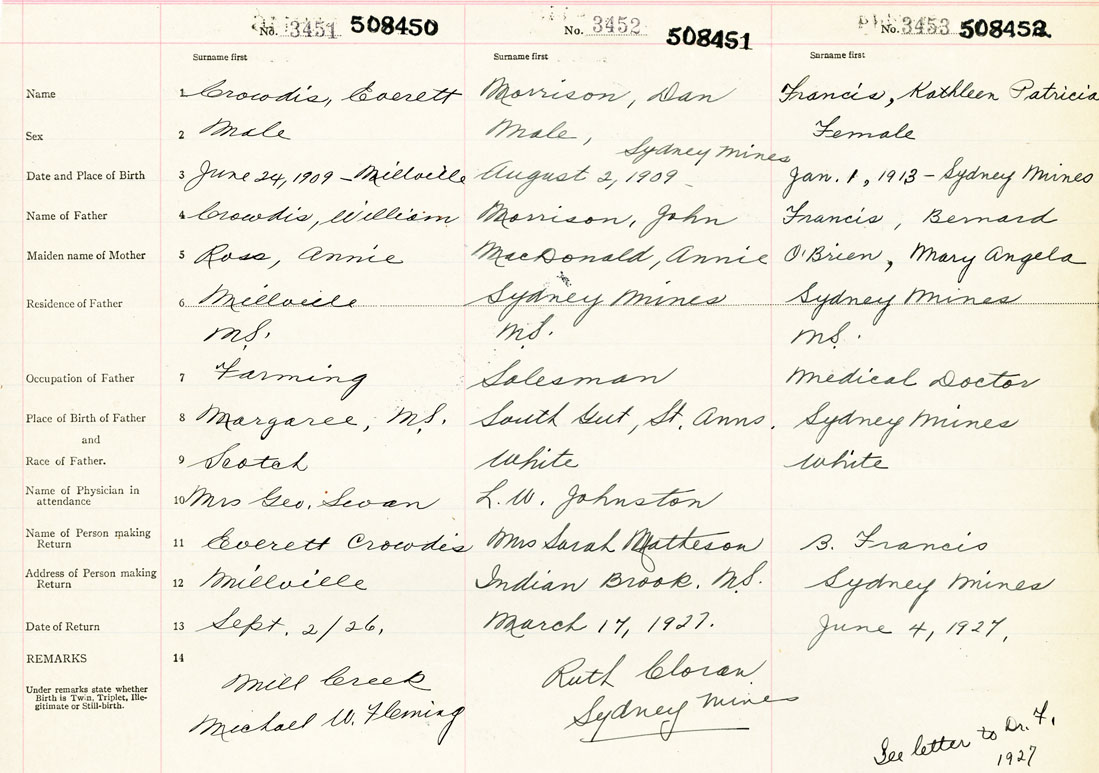 No. 3451 508450 No. 3452 508451 No. 3453 508452
Surname first Surname first Surname first
Name 1 Crowdis, Everett Morrison, Dan Francis, Kathleen Patricia
Sex 2 Male Male, Female
Sydney Mines
Date and Place of Birth 3 June 24, 1909 - Millville August 2, 1909 - Jan. 1, 1913 - Sydney Mines
Name of Father 4 Crowdis, William Morrison, John Francis, Bernard
Maiden name of Mother 5 Ross, Annie MacDonald, Annie O'Brien, Mary Angela
Residence of Father 6 Millville Sydney Mines Sydney Mines
N.S. N.S. N.S.
Occupation of Father 7 Farming Salesman Medical Doctor
Place of Birth of Father 8 Margaree, N.S. South Gut, St. Anns. Sydney Mines
and
Race of Father. 9 Scotch White White
Name of Physician in
attendance 10 Mrs Geo. Swan L. W. Johnston
Name of Person making
Return 11 Everett Crowdis Mrs Sarah Matheson B. Francis
Address of Person making
Return 12 Millville Indian Brook, N.S. Sydney Mines
Date of Return 13 Sept. 2/26, March 17, 1927. June 4, 1927.
REMARKS 14
Under remarks state whether
Birth is Twin, Triplet, Ille-
gitimate or Still-birth.
Mill Creek Ruth Cloran
Michael W. Fleming Sydney Mines
See letter to Dr. F.
1927